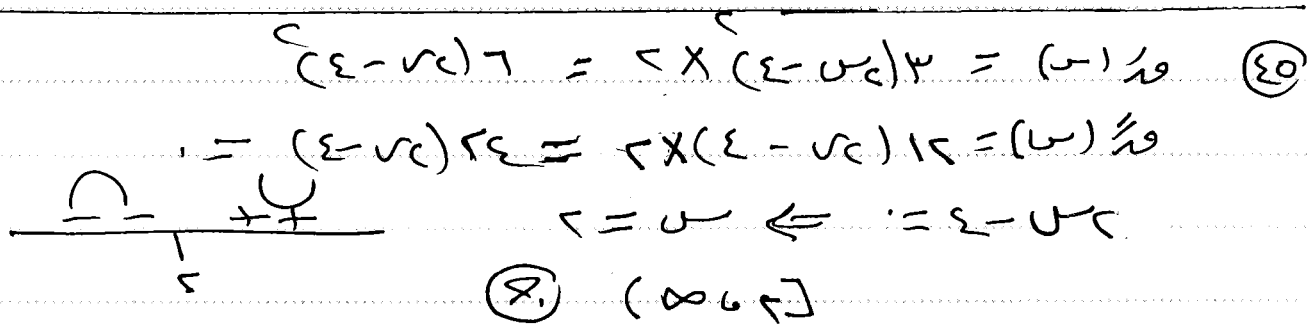 ٤٥ قَ(س) = ٣(٢س-٤)٢ × ٢ = ٦(٢س-٤)٢
قً(س) = ١٢(٢س - ٤)×٢ = ٢٤(٢س-٤) = ٠
٢س-٤ = ٠ ⇐ س = ٢
- - ++
٢
[٢ ، ∞)